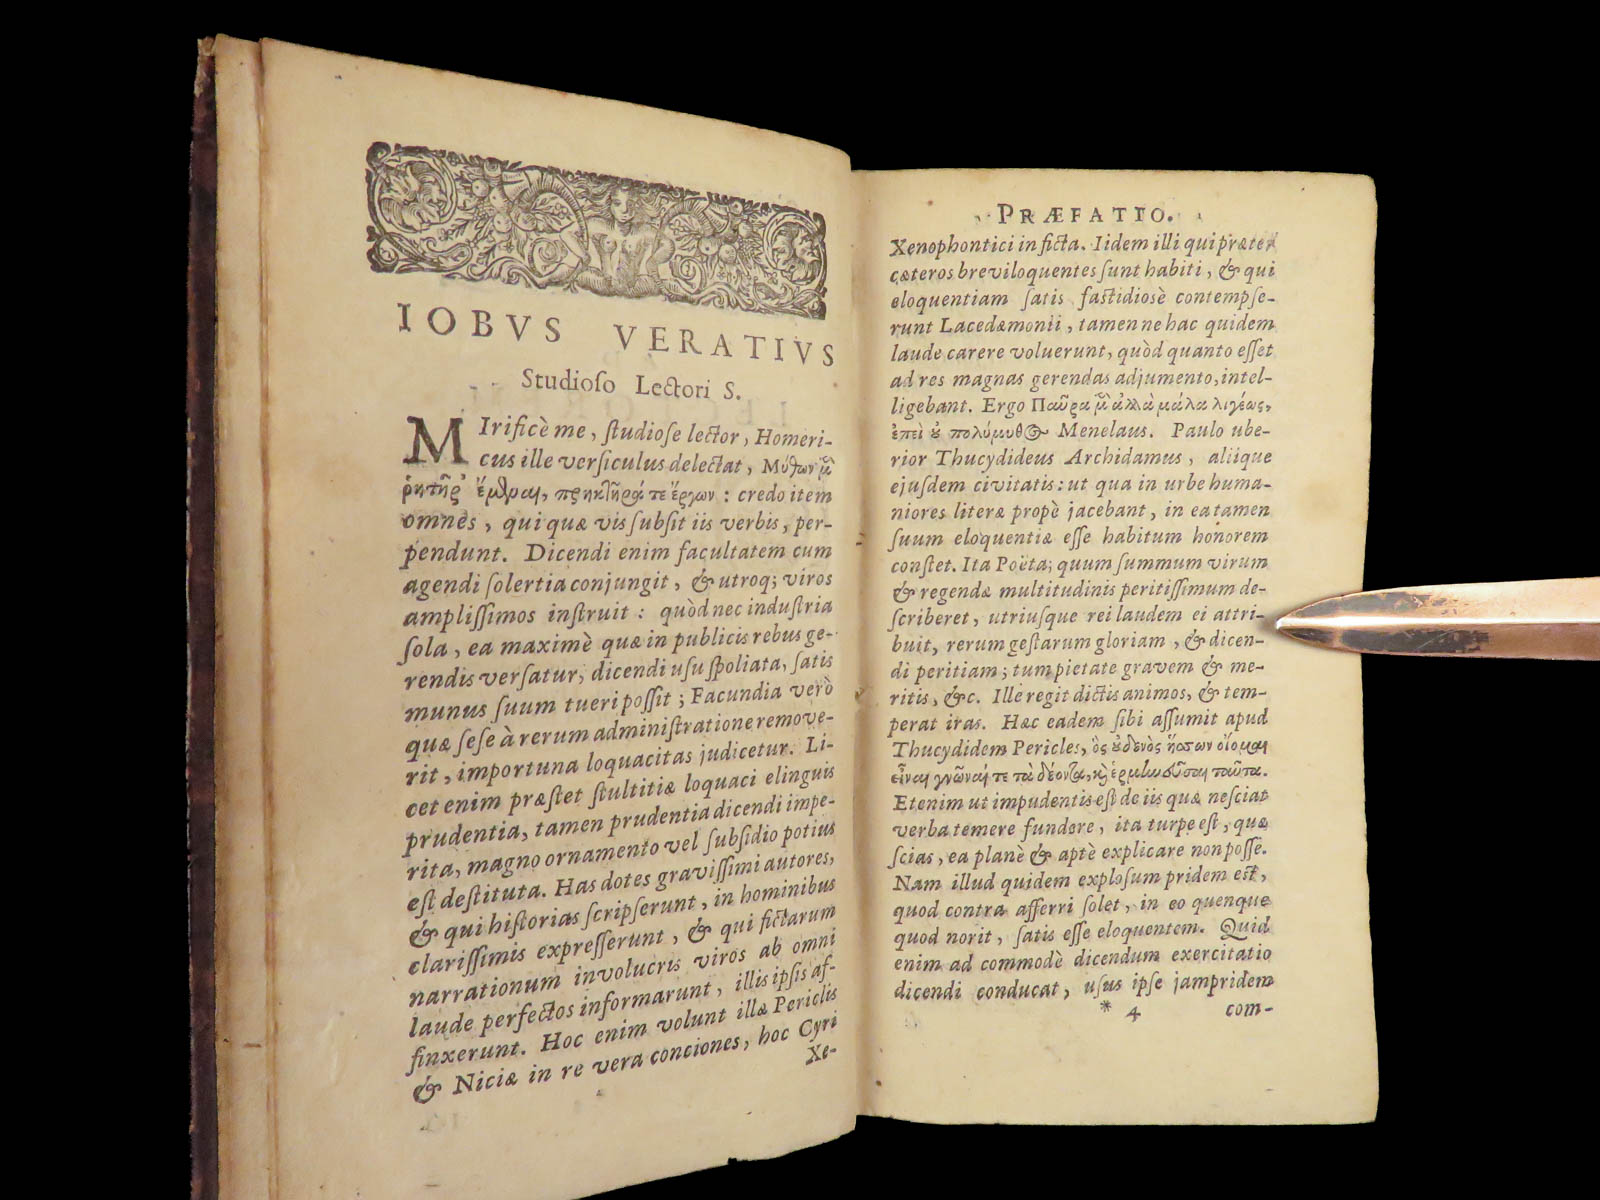 IOBVS VERATIVS
Studioſo Lectori S.
MIrificè me, ſtudioſe lector, Homeri-
cus ille verſiculus delectat, Μύθων μ̂
ῥητῆρ' ἔμθμαι, πρηκτῆρά τε ἔργων : credo item
omnes, qui quæ vis ſubſit iis verbis, per-
pendunt. Dicendi enim facultatem cum
agendi ſolertia conjungit, & utroq; viros
ampliſſimos inſtruit : quòd nec induſtria
ſola, ea maximè quæ in publicis rebus ge-
rendis verſatur, dicendi uſu ſpoliata, ſatis
munus ſuum tueri poſſit ; Facundia verò
quæ ſeſe à rerum adminiſtratione remove-
rit, importuna loquacitas judicetur. Li-
cet enim præſtet ſtultitiæ loquaci elinguis
prudentia, tamen prudentia dicendi impe-
rita, magno ornamento vel ſubſidio potius
eſt deſtituta. Has dotes graviſſimi autores,
& qui hiſtorias ſcripſerunt, in hominibus
clariſſimis expreſſerunt, & qui fictarum
narrationum involucris viros ab omni
laude perfectos informarunt, illis ipſis af-
finxerunt. Hoc enim volunt illæ Periclis
& Niciæ in re vera conciones, hoc Cyri
Xe-
PRÆFATIO.
Xenophontici in ficta. Iidem illi qui præter
cæteros breviloquentes ſunt habiti, & qui
eloquentiam ſatis faſtidiosè contempſe-
runt Lacedæmonii, tamen ne hac quidem
laude carere voluerunt, quòd quanto eſſet
ad res magnas gerendas adjumento, intel-
ligebant. Ergo Παῦρα μ̂ ἀλλὰ μάλα λιγέως,
ἐπεὶ ȣ πολύμυθος Menelaus. Paulo ube-
rior Thucydideus Archidamus, aliique
ejuſdem civitatis : ut qua in urbe huma-
niores literæ propè jacebant, in ea tamen
ſuum eloquentiæ eſſe habitum honorem
conſtet. Ita Poëta; quum ſummum virum
& regendæ multitudinis peritiſſimum de-
ſcriberet, utriuſque rei laudem ei attri-
buit, rerum geſtarum gloriam, & dicen-
di peritiam; tum pietate gravem & me-
ritis, &c. Ille regit dictis animos, & tem-
perat iras. Hæc eadem ſibi aſſumit apud
Thucydidem Pericles, ὃς ȣδενὸς ἥσσων οἴομαι
εἶναι γνῶναί τε τὰ δέοντα, κ̀ ἑρμlωεῦσαι ταῦτα.
Etenim ut impudentis eſt de iis quæ neſciat
verba temere fundere, ita turpe eſt, quæ
ſcias, ea planè & aptè explicare non poſſe.
Nam illud quidem exploſum pridem eſt,
quod contra afferri ſolet, in eo quenque
quod norit, ſatis eſſe eloquentem. Quid
enim ad commodè dicendum exercitatio
dicendi conducat, uſus ipſe jampridem
* 4 com-